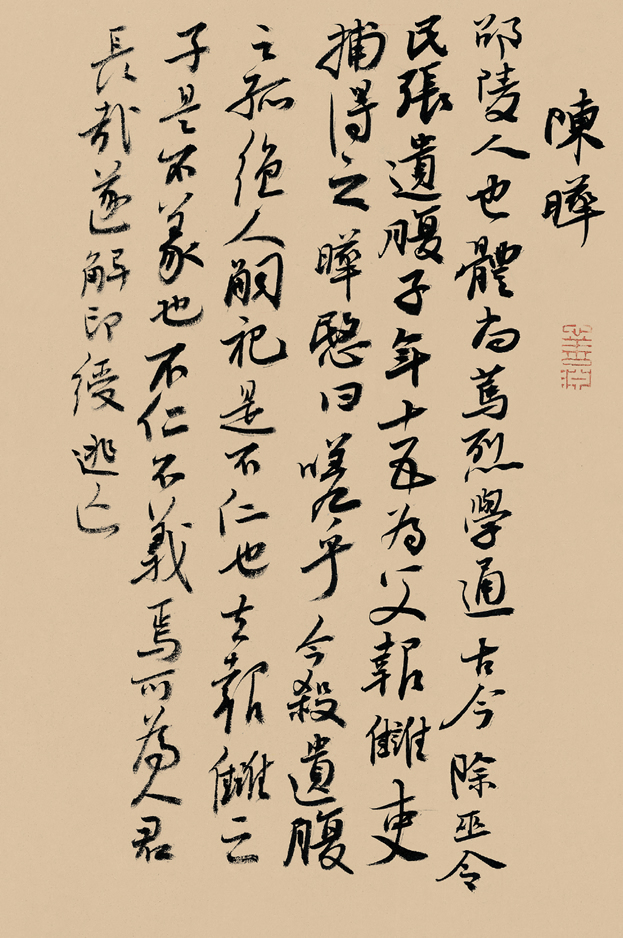 陳曄
邵陵人也體尚篤烈學通古今除巫令
民張遺腹子年十五為父報讎吏
捕得之曄愍曰嗟乎今殺遺腹
之孤絕人嗣祀是不仁也去報讎之
子是不義也不仁不義焉可為人君
長哉遂解印綬逃亡